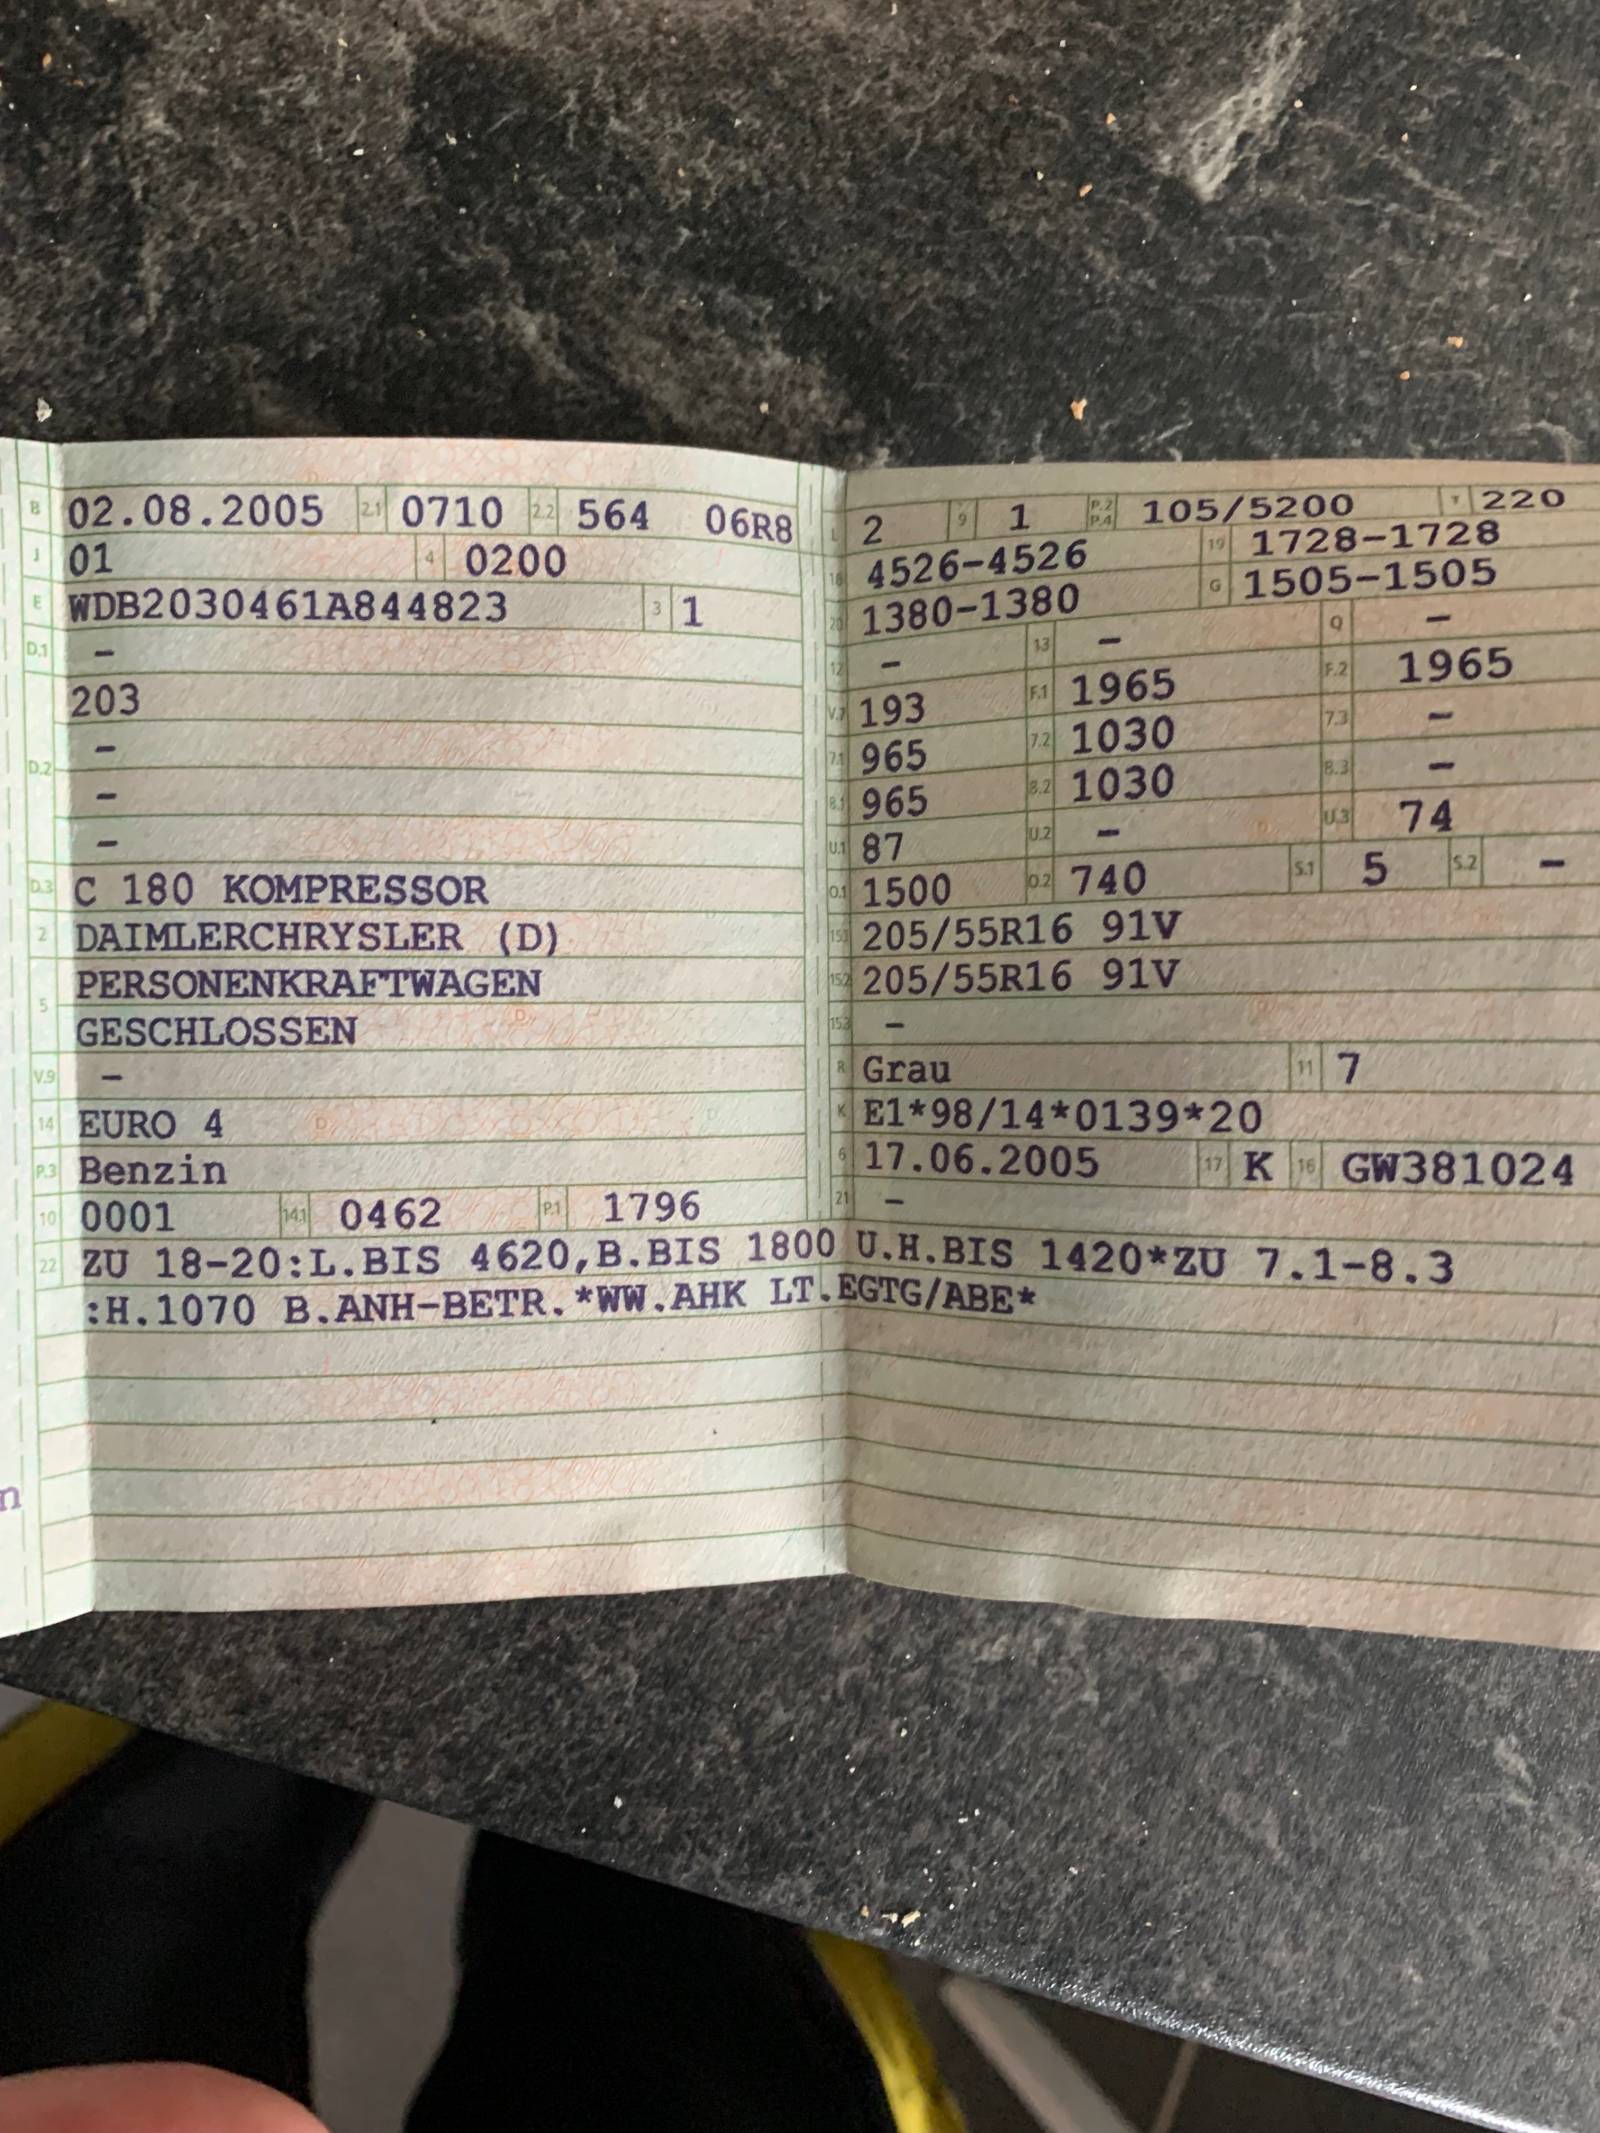 B 02.08.2005 2.1 0710 2.2 564 06R8
J 01 4 0200
E WDB2030461A844823 3 1
D.1 –
203
D.2 –
–
–
D.3 C 180 KOMPRESSOR
2 DAIMLERCHRYSLER (D)
5 PERSONENKRAFTWAGEN
GESCHLOSSEN
V.9 –
14 EURO 4
P.3 Benzin
10 0001 14.1 0462 P.1 1796
L 2 9 1 P.2 P.4 105/5200 T 220
18 4526-4526 19 1728-1728
20 1380-1380 G 1505-1505
12 – 13 – Q –
V.7 193 F.1 1965 F.2 1965
7.1 965 7.2 1030 7.3 –
8.1 965 8.2 1030 8.3 –
U.1 87 U.2 – U.3 74
O.1 1500 O.2 740 S.1 5 S.2 –
15.1 205/55R16 91V
15.2 205/55R16 91V
15.3 –
R Grau 11 7
K E1*98/14*0139*20
6 17.06.2005 17 K 16 GW381024
21 –
22 ZU 18-20:L.BIS 4620,B.BIS 1800 U.H.BIS 1420*ZU 7.1-8.3
:H.1070 B.ANH-BETR.*WW.AHK LT.EGTG/ABE*
n